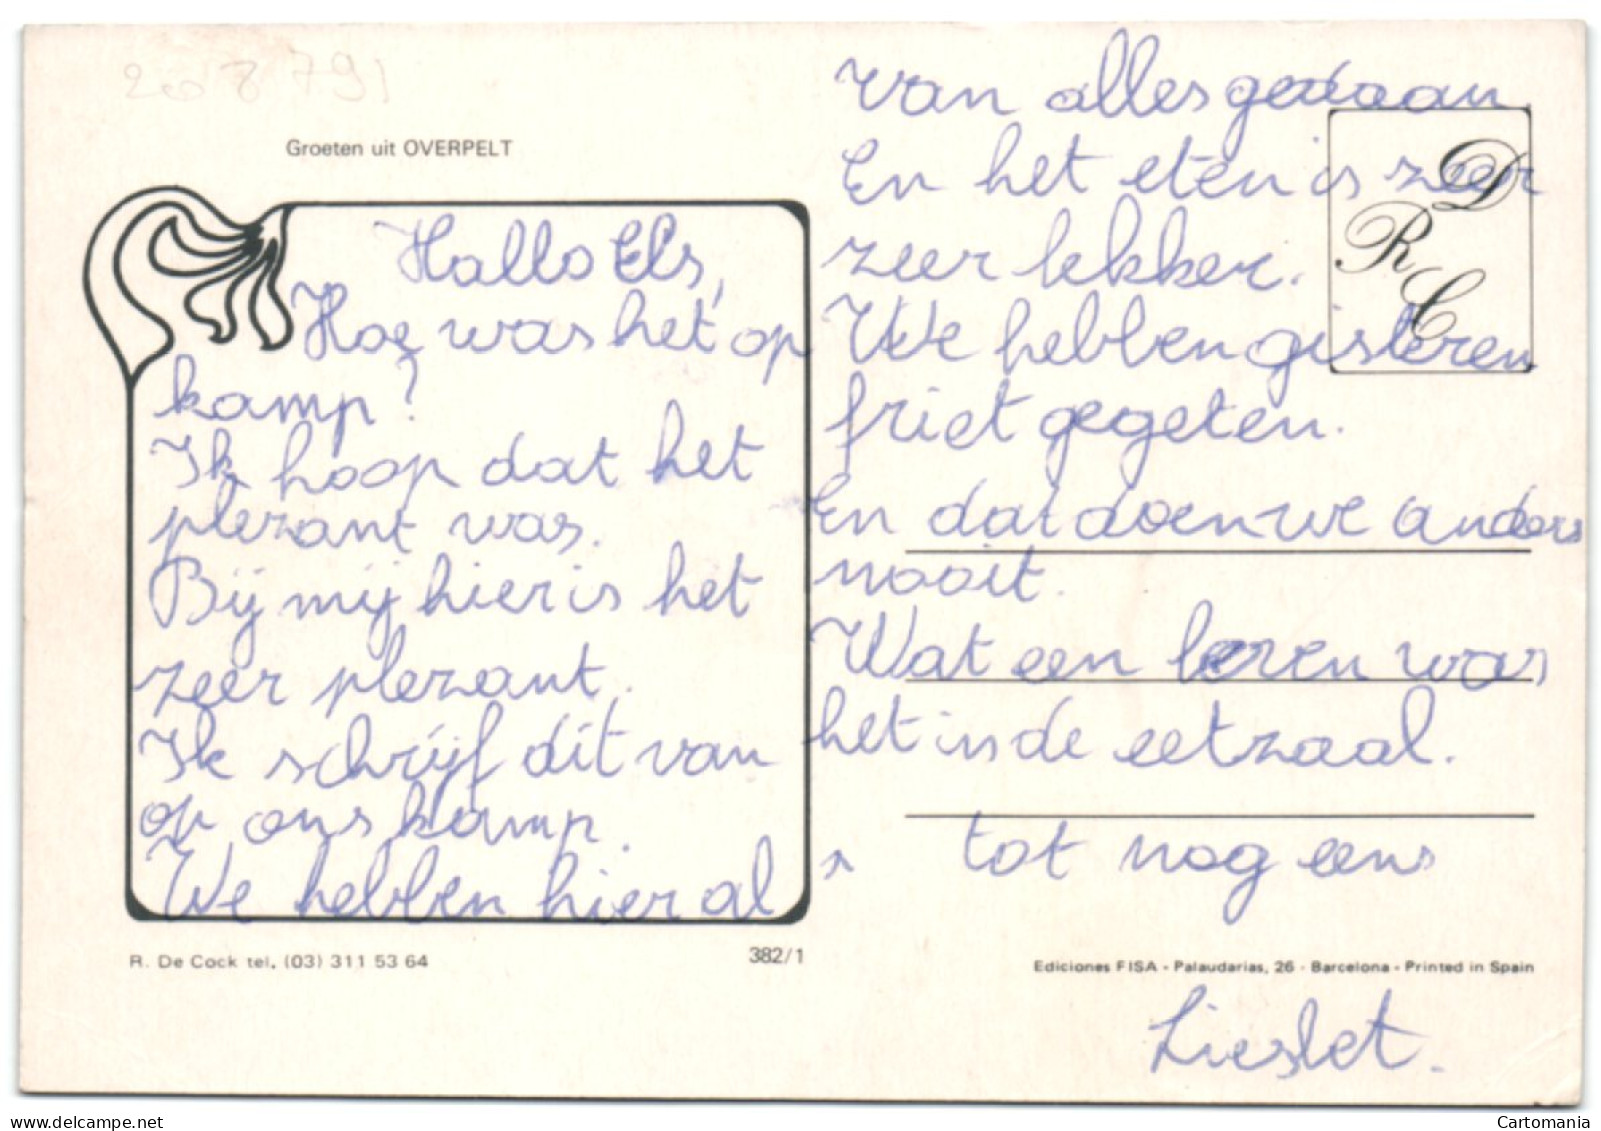 208791
Groeten uit OVERPELT
Hallo Els,
Hoe was het op
kamp?
Ik hoop dat het
plezant was.
Bij mij hier is het
zeer plezant.
Ik schrijf dit van
op ons kamp.
We hebben hier al
R. De Cock tel. (03) 311 53 64
382/1
van alles gedaan.
En het eten is zeer
zeer lekker.
We hebben gisteren
friet gegeten.
En dat doen we anders
nooit.
Wat een leven was
het in de eetzaal.
tot nog eens
D
R
C
Ediciones FISA - Palaudarias, 26 - Barcelona - Printed in Spain
Lieslet.
Cartomania